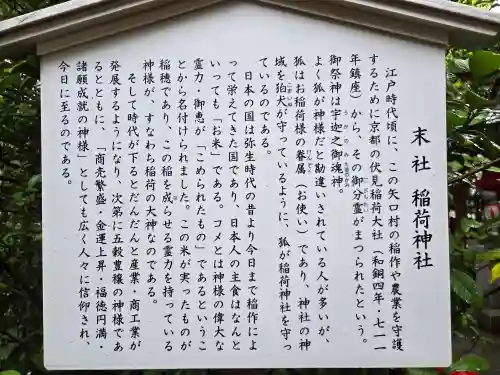 末社 稲荷神社
江戸時代頃に、この矢口村の稲作や農業を守護
するために京都の伏見稲荷大社(和銅四年・七一一
年鎮座)から、その御分霊がまつられたという。
御祭神は宇迦之御魂神。
よく狐が神様だと勘違いされている人が多いが、
狐はお稲荷様の眷属(お使い)であり、神社の神
域を狛犬が守っているように、狐が稲荷神社を守っ
ているのである。
日本の国は弥生時代の昔より今日まで稲作によ
って栄えてきた国であり、日本人の主食はなんと
いっても「お米」である。コメとは神様の偉大な
霊力・御恵が「こめられたもの」であるというこ
とから名付けられました。この米が実ったものが
稲穂であり、この稲を成らせる霊力を持っている
神様が、すなわち稲荷の大神なのである。
そして時代が下るとだんだんと産業・商工業が
発展するようになり、次第に五穀豊穣の神様であ
るとともに、「商売繁盛・金運上昇・福徳円満・
諸願成就の神様」としても広く人々に信仰され、
今日に至るのである。